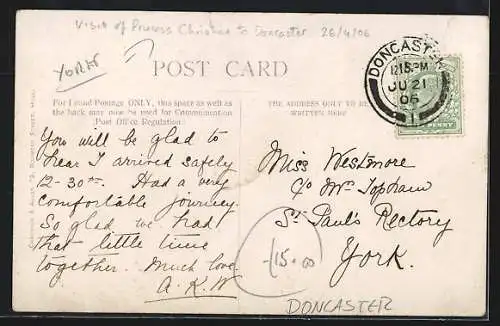 Visit of Princess Christian to Doncaster 26/4/06
YORK
POST CARD
DONCASTER
1215PM
JU 21
06
1
PENNY
For Inland Postage ONLY, this space as well as the
back may now be used for Communication
(Post Office Regulation)
THE ADDRESS ONLY TO BE
WRITTEN HERE
You will be glad to
hear I arrived safely
12-30. Had a very
comfortable journey.
So glad we had
that little time
together. Much love
A.K.W
Miss Westmore
c/o Mrs Topham
St. Paul's Rectory
York.
£15.00
DONCASTER